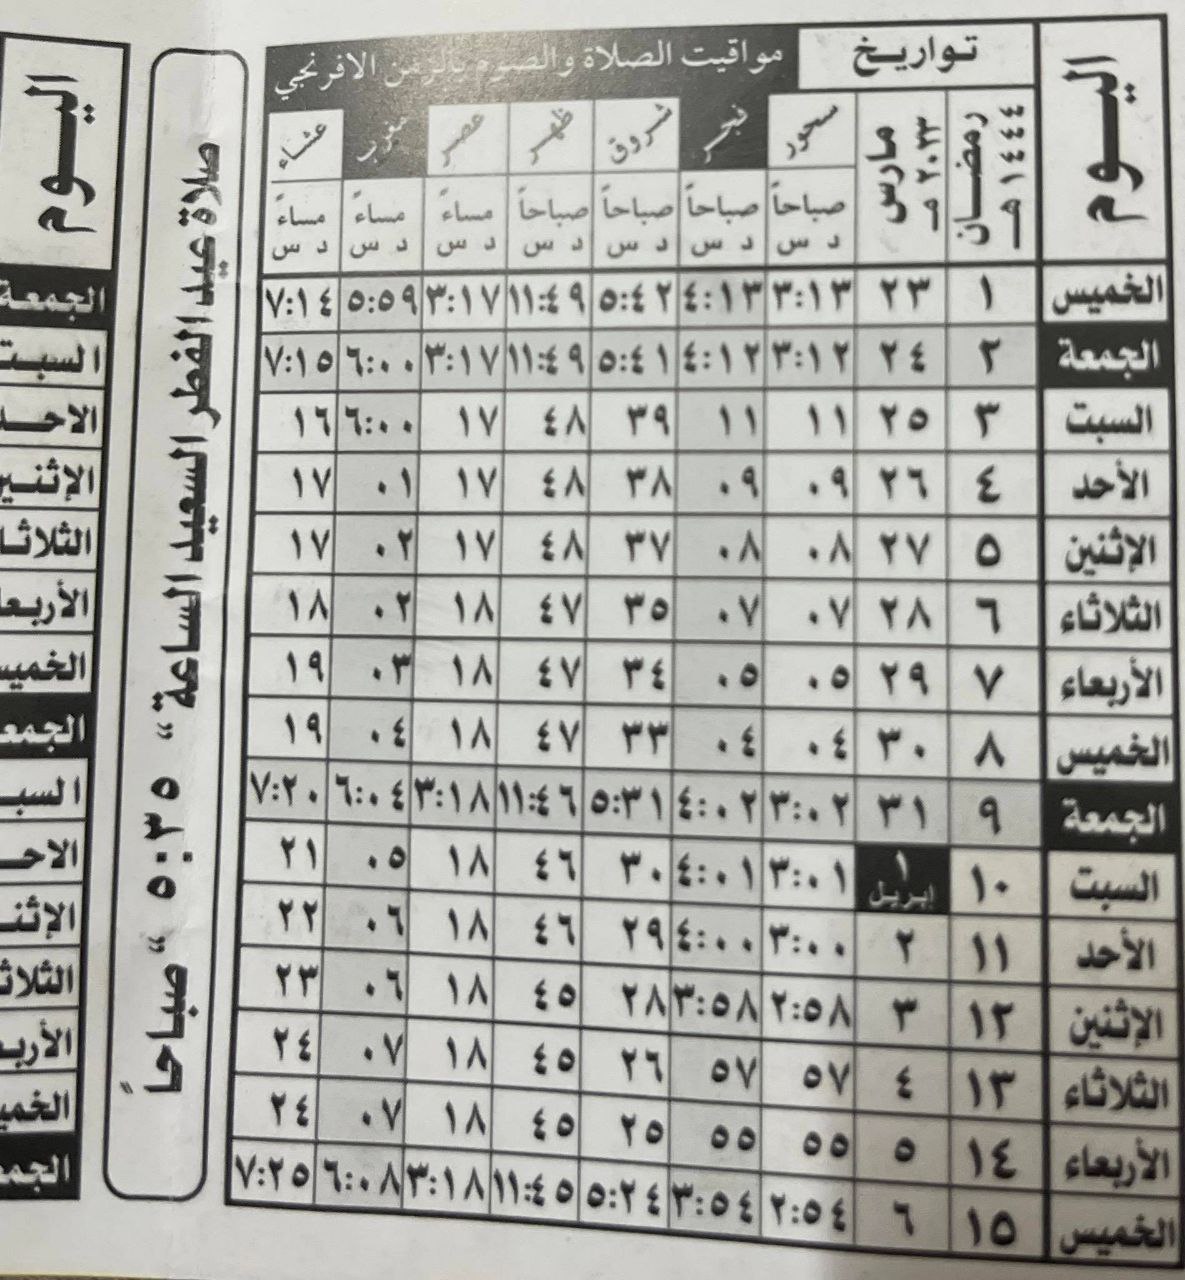 اليـوم
تـواريـخ
مواقيت الصلاة والصوم بالزمن الافرنجي
رمضـان ١٤٤٤هـ
مارس ٢٠٢٣م
سحور
فجر
شروق
ظهر
عصر
مغرب
عشاء
صباحاً صباحاً صباحاً صباحاً مساءً مساءً مساءً
د س د س د س د س د س د س د س
الخميس ١ ٢٣ ٣:١٣ ٤:١٣ ٥:٤٢ ١١:٤٩ ٣:١٧ ٥:٥٩ ٧:١٤
الجمعة ٢ ٢٤ ٣:١٢ ٤:١٢ ٥:٤١ ١١:٤٩ ٣:١٧ ٦:٠٠ ٧:١٥
السبت ٣ ٢٥ ١١ ١١ ٣٩ ٤٨ ١٧ ٦:٠٠ ١٦
الأحد ٤ ٢٦ ٠٩ ٠٩ ٣٨ ٤٨ ١٧ ٠١ ١٧
الإثنين ٥ ٢٧ ٠٨ ٠٨ ٣٧ ٤٨ ١٧ ٠٢ ١٧
الثلاثاء ٦ ٢٨ ٠٧ ٠٧ ٣٥ ٤٧ ١٨ ٠٢ ١٨
الأربعاء ٧ ٢٩ ٠٥ ٠٥ ٣٤ ٤٧ ١٨ ٠٣ ١٩
الخميس ٨ ٣٠ ٠٤ ٠٤ ٣٣ ٤٧ ١٨ ٠٤ ١٩
الجمعة ٩ ٣١ ٣:٠٢ ٤:٠٢ ٥:٣١ ١١:٤٦ ٣:١٨ ٦:٠٤ ٧:٢٠
السبت ١٠ ١ إبريل ٣:٠١ ٤:٠١ ٣٠ ٤٦ ١٨ ٠٥ ٢١
الأحد ١١ ٢ ٣:٠٠ ٤:٠٠ ٢٩ ٤٦ ١٨ ٠٦ ٢٢
الإثنين ١٢ ٣ ٢:٥٨ ٣:٥٨ ٢٨ ٤٥ ١٨ ٠٦ ٢٣
الثلاثاء ١٣ ٤ ٥٧ ٥٧ ٢٦ ٤٥ ١٨ ٠٧ ٢٤
الأربعاء ١٤ ٥ ٥٥ ٥٥ ٢٥ ٤٥ ١٨ ٠٧ ٢٤
الخميس ١٥ ٦ ٢:٥٤ ٣:٥٤ ٥:٢٤ ١١:٤٥ ٣:١٨ ٦:٠٨ ٧:٢٥
صلاة عيد الفطر السعيد الساعة " ٥:٣٥ " صباحاً
اليـوم
الجمعة
السبت
الاحـد